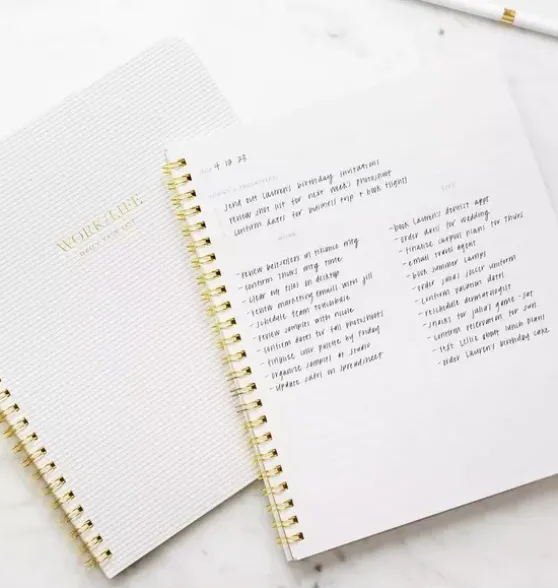 WORK/LIFE
4 10 23
send out lauren's birthday invitations
review shot list for next week's photoshoot
confirm dates for business trip + book flights
WORK
- review bestsellers in finance mtg
- confirm thurs mtg time
- clear out files on desktop
- review marketing emails with jill
- schedule team touchbase
- review samples with nicole
- confirm dates for fall photoshoots
- finalize color palette by friday
- organize samples at studio
- update sales on spreadsheet
LIFE
- book lauren's dentist appt
- order dress for wedding
- finalize carpool plans for thurs
- email travel agent
- book summer camps
- order julia's soccer uniform
- confirm vacation dates
- reschedule dermatologist
- snacks for julia's game - sat
- confirm reservation for sun
- text leslie about lunch plans
- order lauren's birthday cake